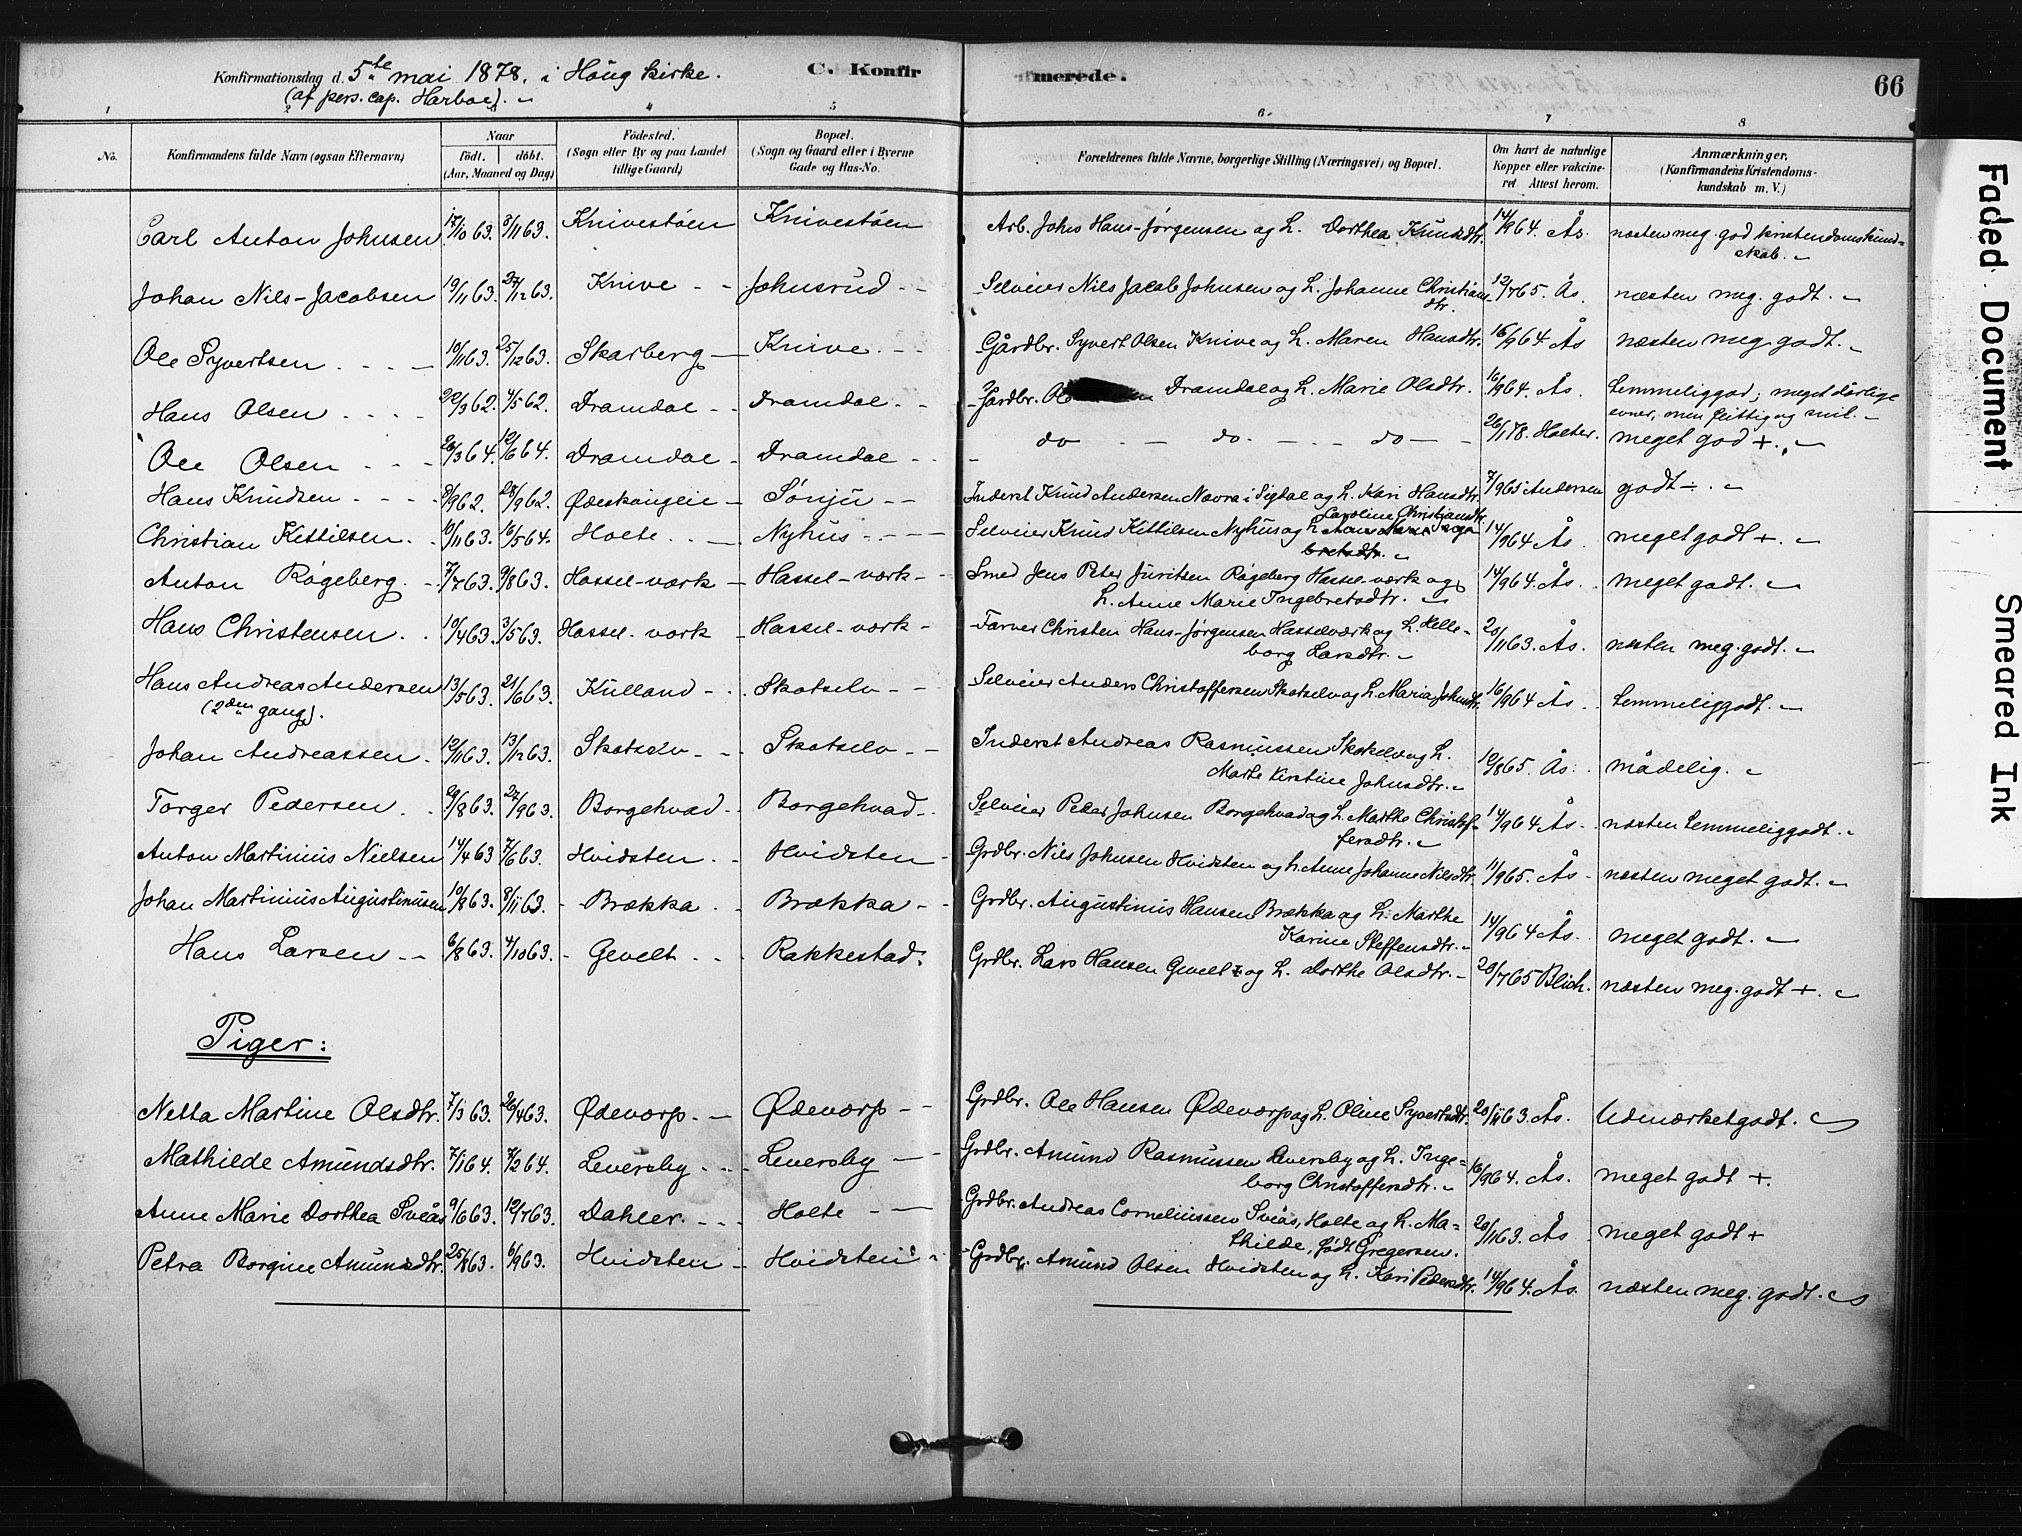 Konfirmationsdag d. 5te mai 1878. i Houg kirke. C. Konfirmerede. 66
(af pers. cap. Harboe).
1 4 5 6 7 8
No. Konfirmandens fulde Navn (ogsaa Efternavn) Naar födt. döbt. (Aar, Maaned og Dag) Födested. (Sogn eller By og paa Landet tillige Gaard) Bopæl. (Sogn og Gaard eller i Byerne Gade og Hus-No. Forældrenes fulde Navne, borgerlige Stilling (Næringsvei) og Bopæl. Om havt de naturlige Kopper eller vakcineret Attest herom. Anmærkninger. (Konfirmandens Kristendomskundskab m. V.)
Carl Anton Johnsen 17/10 63. 8/11 63. Knivestøen Knivestøen Arb. Johs Hans-Jørgensen og h. Dorthea Knudsdtr. 14/9 64. Ås. næsten meg. god kristendomskundskab.
Johan Nils-Jacobsen 19/11 63. 27/12 63. Knive Johnsrud Selveier Nils Jacob Johnsen og h. Johanne Christiansdtr. 12/7 65. Ås. næsten meg. godt.
Ole Syvertsen 10/11 63. 25/12 63. Skarberg Knive Gårdbr. Syvert Olsen Knive og h. Maren Hansdtr. 16/9 64 Ås næsten meg. godt.
Hans Olsen 22/3 62. 4/5 62. Dramdal Dramdal Gårdbr. Dramdal og h. Marie Olsdtr. 16/9 64. Ås. temmeliggod; meget dårlige evner, men flittig og snil.
Ole Olsen 20/3 64. 12/6 64. Dramdal Dramdal do do do 26/1 78. Holter. meget god +.
Hans Knudsen 8/9 62. 28/9 62. Ødeskougeie Sønju Inderst Knud Andersen Navra i Sigdal og h. Kari Hansdtr. 7/9 65 Andersen godt ÷.
Christian Kettilsen 10/11 63. 16/5 64. Holte Nyhus Selveier Knud Kittilsen Nyhus og h. Caroline Christiansdtr. 14/9 64 Ås. meget godt +.
Anton Røgeberg 7/7 63. 9/8 63. Hassel-værk Hassel-værk Smed Jens Peter Juritsen Røgeberg Hassel-værk og h. Anne Marie Ingebretsdtr. 14/9 64. Ås. meget godt.
Hans Christensen 10/4 63. 3/5 63. Hassel-værk Hassel-værk Farver Christen Hans-Jørgensen Hasselværk og h. Helleborg Larsdtr. 20/11 63. Ås. næsten meg. godt.
Hans Andreas Andersen (2den gang). 13/5 63. 21/6 63. Kulland Skotselv Selveier Anders Christoffersen Skotselv og h. Maria Johnsdtr. 16/9 64 Ås temmeliggodt.
Johan Andreassen 12/11 63. 13/12 63. Skotselv Skotselv Inderst Andreas Rasmussen Skotselv og h. Marte Kirstine Johnsdtr. 12/8 65. Ås. mådelig.
Torger Pedersen 29/8 63. 27/9 63. Borgehvad Borgehvad Selveier Peder Johnsen Borgehvad og h. Marthe Christoffersdtr. 14/9 64 Ås næsten temmeliggodt.
Anton Martinius Nielsen 14/4 63 7/6 63. Hvidsten Hvidsten Grdbr. Nils Johnsen Hvidsten og h. Anne Johanne Nilsdtr. 11/9 65. Ås næsten meget godt.
Johan Martinius Augustinusen 10/8 63. 8/11 63. Brækka Brækka Grdbr. Augustinus Hansen Brækka og h. Marthe Karine Steffensdtr. 14/9 64 Ås. meget godt.
Hans Larsen 6/8 63. 4/10 63. Gevelt Rakkestad Grdbr. Lars Hansen Gevelt og h. Dorthe Olsdtr. 20/7 65 Blich. næsten meg. godt +.
Piger:
Netta Martine Olsdtr. 7/3 63. 26/4 63. Ødevorp Ødevorp Grdbr. Ole Hansen Ødevorp og h. Oline Syvertsdtr. 20/11 63. Ås. Udmærketgodt.
Mathilde Amundsdtr. 7/1 64. 7/2 64. Leversby Leversby Grdbr. Amund Rasmussen Leversby og h. Ingeborg Christoffersdtr. 16/9 64. Ås. meget godt +.
Anne Marie Dorthea Sveås 9/6 63. 12/7 63. Dahler Holte Grdbr. Andreas Corneliussen Sveås, Holte og h. Mathilde, født Gregersen. 20/11 63. Ås meget godt +
Petra Borgine Amundsdtr. 25/7 63. 6/9 63. Hvidsten Hvidsten Grdbr. Amund Olsen Hvidsten og h. Kari Pedersdtr. 14/9 64. Ås. næsten meg. godt.
Faded Document
Smeared Ink